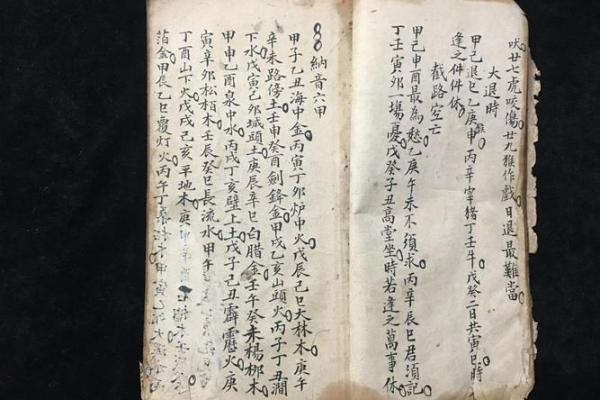 吠廿七虎咬傷廿九猴作戲日退最難當
大退時
甲己退巳乙庚申丙辛宰猪丁壬牛戊癸二日共寅巳時
逢之件件休
截路空亡
甲己申酉最為愁乙庚午未不須求丙辛辰巳君須記
丁壬寅卯一場憂戊癸子丑高堂坐時若逢之萬事休
納音六甲
甲子乙丑海中金丙寅丁卯炉中火戊辰己巳大林木庚午
辛未路傍土壬申癸酉劍鋒金甲戌乙亥山頭火丙子丁丑澗
下水戊寅己卯城頭土庚辰辛巳白腊金壬午癸未楊柳木
甲申乙酉泉中水丙戌丁亥壁上土戊子己丑霹靂火庚
寅辛卯松栢木壬辰癸巳長流水甲午
丁酉山下火戊戌己亥平地木庚
箔金甲辰乙巳覆灯火丙午丁